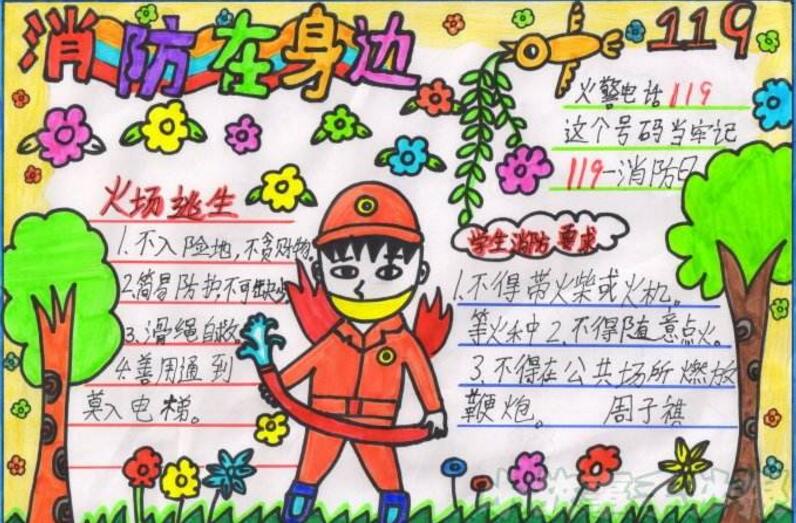 消防在身边
119
火警电话119
这个号码当牢记
119一消防日
火场逃生
1.不入险地,不贪财物。
2.简易防护,不可缺少
3.滑绳自救
4.善用通到
莫入电梯。
学生消防要求
1.不得带火柴或火机。
等火种2.不得随意点火。
3.不得在公共场所燃放
鞭炮。 周子祺